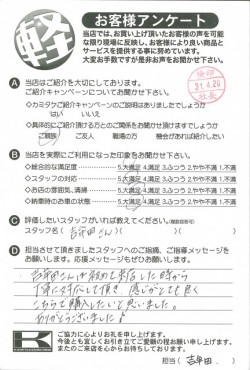 軽
お客様アンケート
当店では、お買い上げ頂いたお客様の声を可能
な限り現場に反映し、お客様により良い商品と
サービスを提供する事に努めています。
大変お手数ですが是非お声をお聞かせ下さい。
A 当店はご紹介を大切にしております。
ご紹介キャンペーンについてお聞かせ下さい。
◇カミタケご紹介キャンペーンのご説明はありましたでしょうか
はい いいえ
◇具体的にご紹介頂ける方とのご関係をお聞かせ頂けますでしょうか
ご親族 ご友人 職場の方 機会があれば紹介したい
B 当店を実際にご利用になった印象をお聞かせ下さい。
◇総合的な満足度 5.大満足 4.満足 3.ふつう 2.やや不満 1.不満
◇スタッフの対応 5.大満足 4.満足 3.ふつう 2.やや不満 1.不満
◇お店の雰囲気、清掃 5.大満足 4.満足 3.ふつう 2.やや不満 1.不満
◇納車時のお車の状態 5.大満足 4.満足 3.ふつう 2.やや不満 1.不満
C 評価したいスタッフがいれば教えてください。
スタッフ名( 吉牟田さん )( )
D 担当させて頂きましたスタッフへのご指摘、ご指導メッセージを
お願いします。応援メッセージもぜひお願いします。
吉牟田さんが初めて来店した時から
丁寧に対応して頂き、感じがとても良く
こちらで購入したいと思いました。
ありがとうございました!
K
ご協力に心よりお礼を申し上げます。
今後とも宜しくお引き立てご愛顧の程お願い申し上げます。
またのご来店を心からお待ちしております。
担当( 吉牟田 )